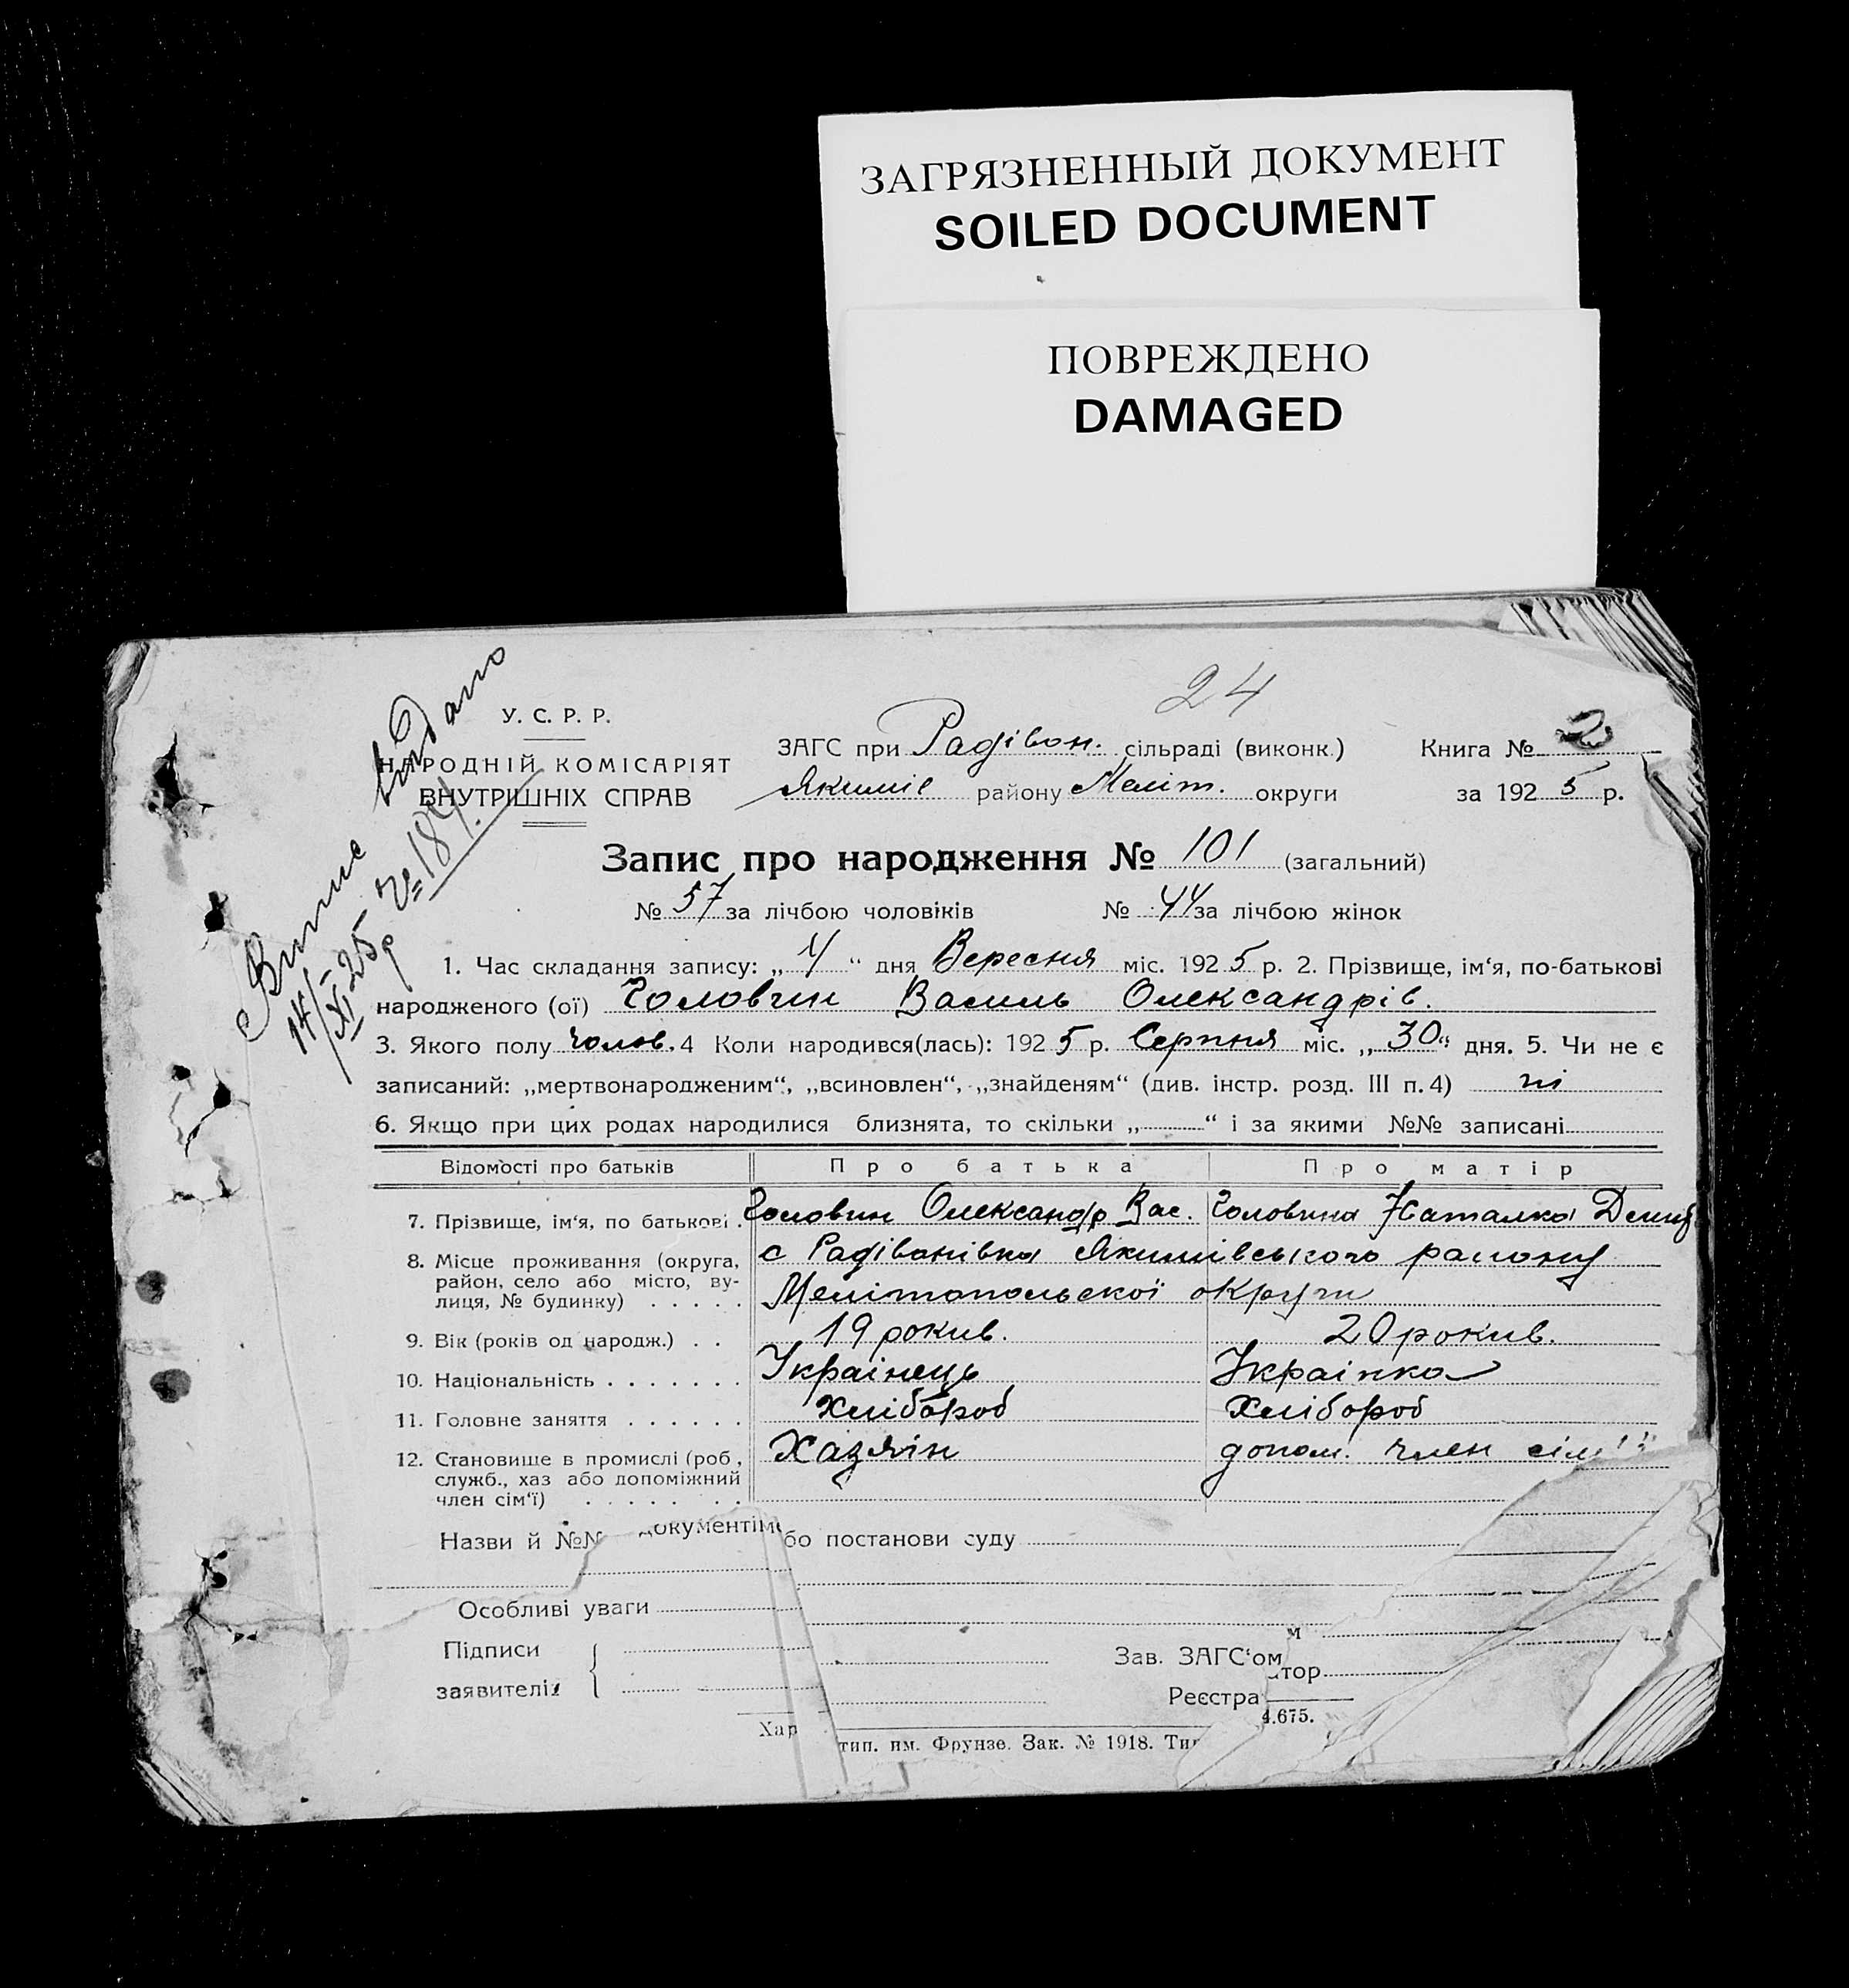 ЗАГРЯЗНЕННЫЙ ДОКУМЕНТ
SOILED DOCUMENT
ПОВРЕЖДЕНО
DAMAGED
24
Випис видано
14/XI 25 р № 184.
У. С. Р. Р.
НАРОДНІЙ КОМІСАРІЯТ
ВНУТРІШНІХ СПРАВ
ЗАГС при Радівон. сільраді (виконк.) Книга № 2
Якимів району Меліт. округи за 1925 р.
Запис про народження № 101 (загальний)
№ 57 за лічбою чоловіків № 44 за лічбою жінок
1. Час складання запису: „4“ дня Вересня міс. 1925 р. 2. Прізвище, ім‘я, по-батькові
народженого (ої) Головин Василь Олександрів.
3. Якого полу чолов. 4 Коли народився(лась): 1925 р. Серпня міс. „30“ дня. 5. Чи не є
записаний: „мертвонародженим“, „всиновлен“, „знайденям“ (див. інстр. розд. III п. 4) ні
6. Якщо при цих родах народилися близнята, то скільки „ “ і за якими №№ записані
Відомості про батьків Про батька Про матір
7. Прізвище, ім‘я, по батькові . Головин Олександр Вас. Головина Наталка
8. Місце проживання (округа, с Радіванівка Якимівського району
район, село або місто, ву-
лиця, № будинку) . . . . . Мелітопольскої округи
9. Вік (років од народж.) . . 19 рокив. 20 рокив.
10. Національність . . . . . . . Украінець Украінка
11. Головне заняття . . . . . . Хлібороб Хлібороб
12. Становище в промислі (роб, Хазяін допом. член сімї
служб., хаз або допоміжний
член сім‘ї) . . . . . . .
Назви й №№ документів або постанови суду
Особливі уваги
Підписи
заявителів
Зав. ЗАГС‘ом
Реєстратор
Хар тип. им. Фрунзе. Зак. № 1918. 4.675.